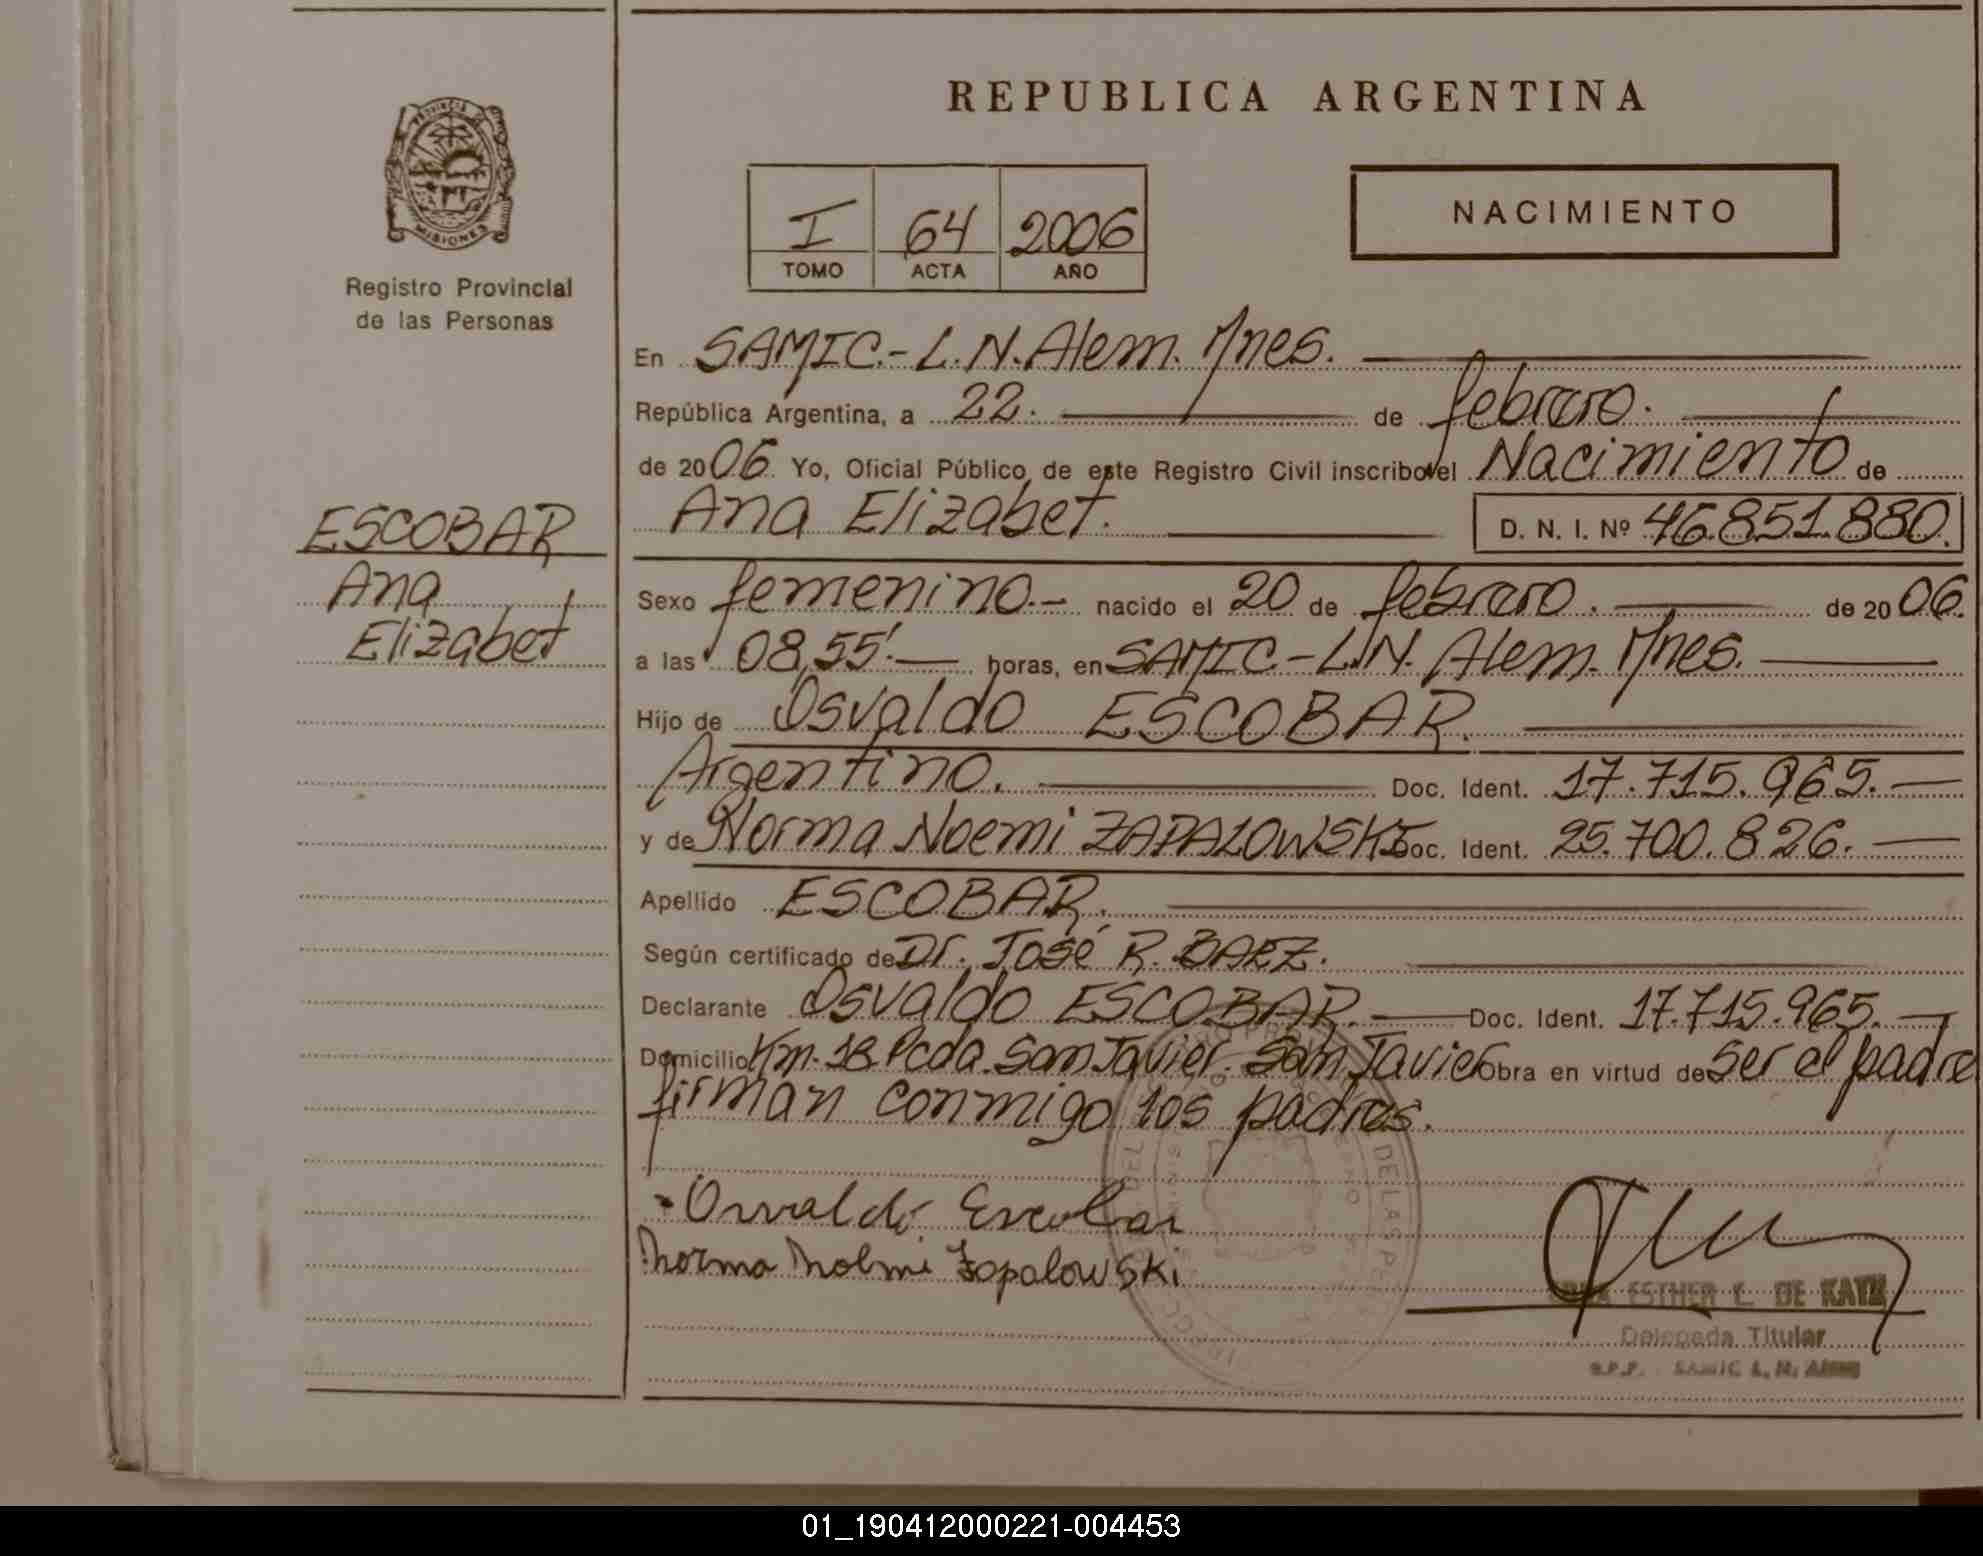 REPUBLICA ARGENTINA
PROVINCIA DE
MISIONES
Registro Provincial
de las Personas
I 64 2006
TOMO ACTA AÑO
NACIMIENTO
En SAMIC.- L.N. Alem. Mnes.
República Argentina, a 22. de febrero.
de 2006. Yo, Oficial Público de este Registro Civil inscribo el Nacimiento de
Ana Elizabet. D. N. I. Nº 46.851.880.
ESCOBAR
Ana
Elizabet
Sexo femenino.- nacido el 20 de febrero. de 2006.
a las 08,55'.- horas, en SAMIC.- L.N. Alem. Mnes.
Hijo de Osvaldo ESCOBAR.
Argentino. Doc. Ident. 17.715.965.-
y de Norma Noemi ZAPALOWSKI Doc. Ident. 25.700.826.-
Apellido ESCOBAR.
Según certificado de Dr. José R. BAEZ.
Declarante Osvaldo ESCOBAR.- Doc. Ident. 17.715.965.-
Domicilio Km. 18 Pcda. San Javier. San Javier Obra en virtud de Ser el padre
firman conmigo los padres.
Osvaldo Escobar
Norma Noemi Zapalowski
ESTHER L. DE KATZ
Delegada Titular
R.P.P. - SAMIC L. N. ALEM
DE LAS PE
01_190412000221-004453